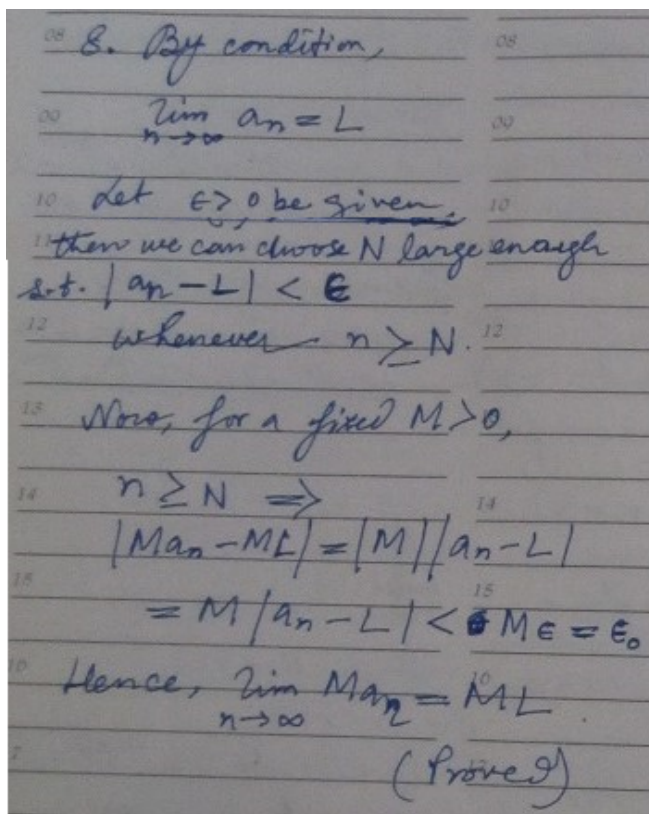 08 8. By condition, 08
09 lim n→∞ an = L 09
10 Let ϵ > 0 be given, 10
11 then we can choose N large enough
s.t. |an − L| < ϵ
12 whenever n ≥ N. 12
13 Now, for a fixed M > 0,
14 n ≥ N ⇒ 14
|Man − ML| = |M||an − L|
15 = M|an − L| < Mϵ = ϵ₀ 15
Hence, lim n→∞ Man = ML.
(Proved)